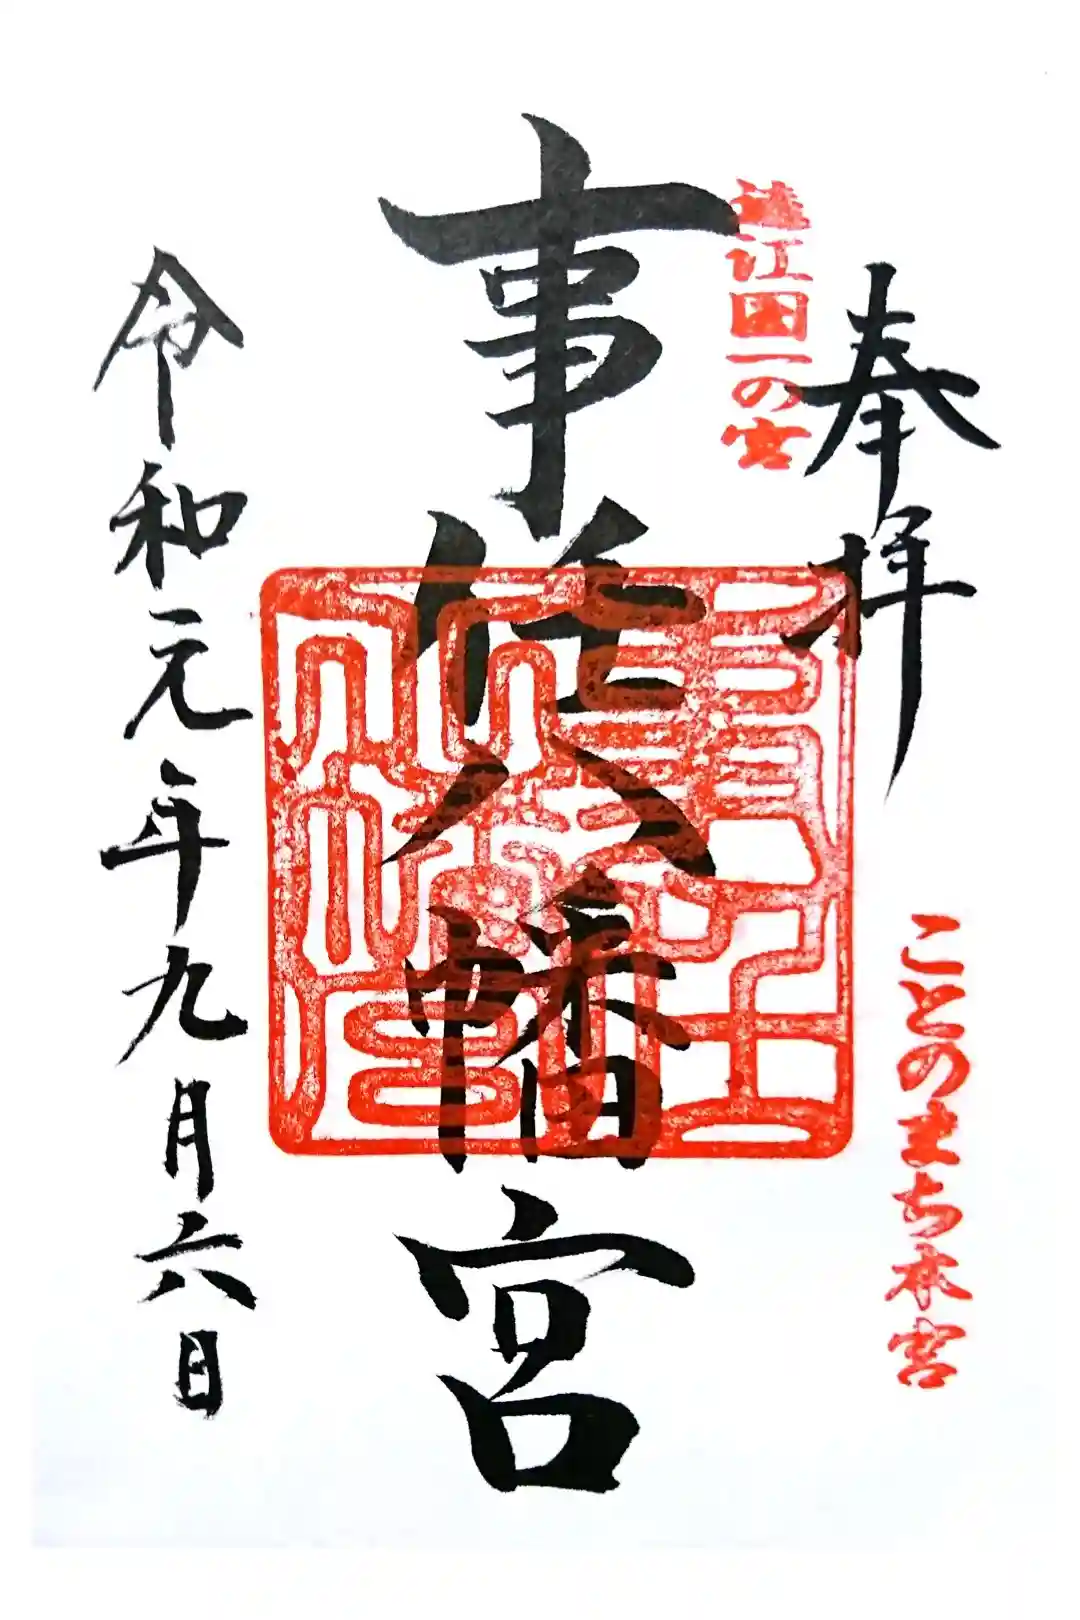 奉拝
ことのまち本宮
遠江国一の宮
事任八幡宮
令和元年九月六日